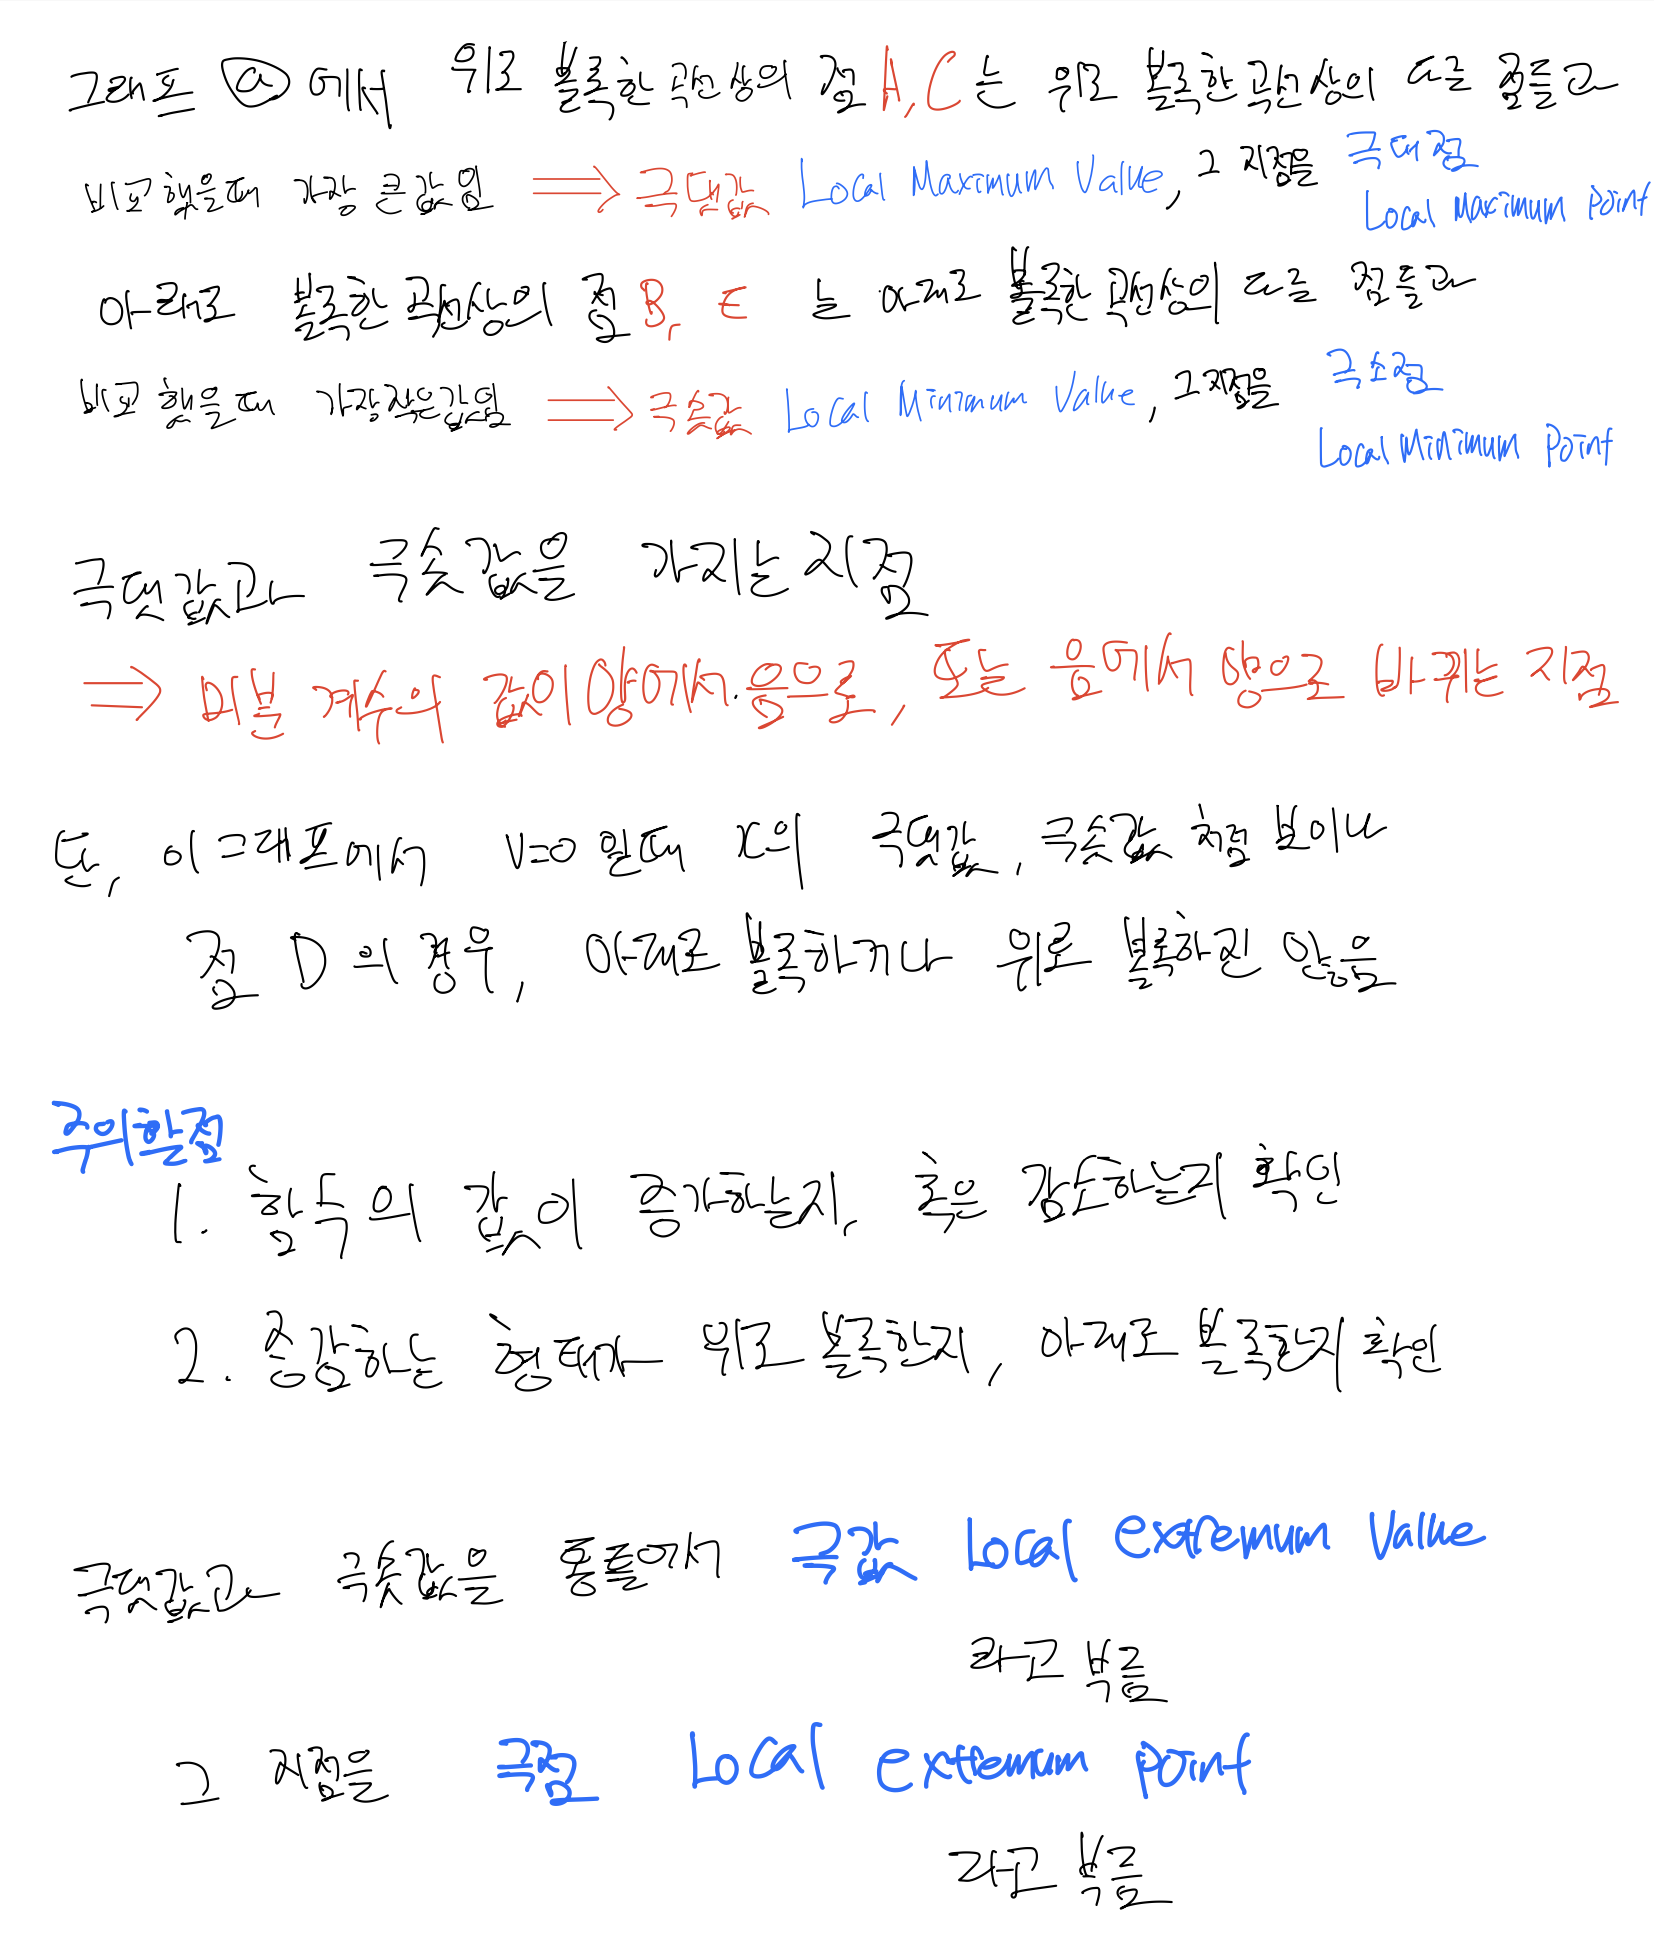 그래프 ⓐ 에서 위로 볼록한 곡선상의 점 A, C 는 위로 볼록한 곡선상의 다른 점들과
비교 했을때 가장 큰값임 ⟹ 극댓값 Local Maximum Value, 그 지점을 극대점
Local Maximum Point
아래로 볼록한 곡선상의 점 B, E 는 아래로 볼록한 곡선상의 다른 점들과
비교 했을때 가장작은값임 ⟹ 극솟값 Local Minimum Value, 그지점을 극소점
Local Minimum Point
극댓값과 극솟값을 가지는 지점
⟹ 미분 계수의 값이 양에서 음으로, 또는 음에서 양으로 바뀌는 지점
단, 이 그래프에서 v=0 일때 x의 극댓값, 극솟값 처럼 보이나
점 D 의 경우, 아래로 볼록하거나 위로 볼록하진 않음
주의할점
1. 함수의 값이 증가하는지, 혹은 감소하는지 확인
2. 증감하는 형태가 위로 볼록한지, 아래로 볼록한지 확인
극댓값과 극솟값을 통틀어서 극값 Local extremum Value
라고 부름
그 지점을 극점 Local extremum point
라고 부름